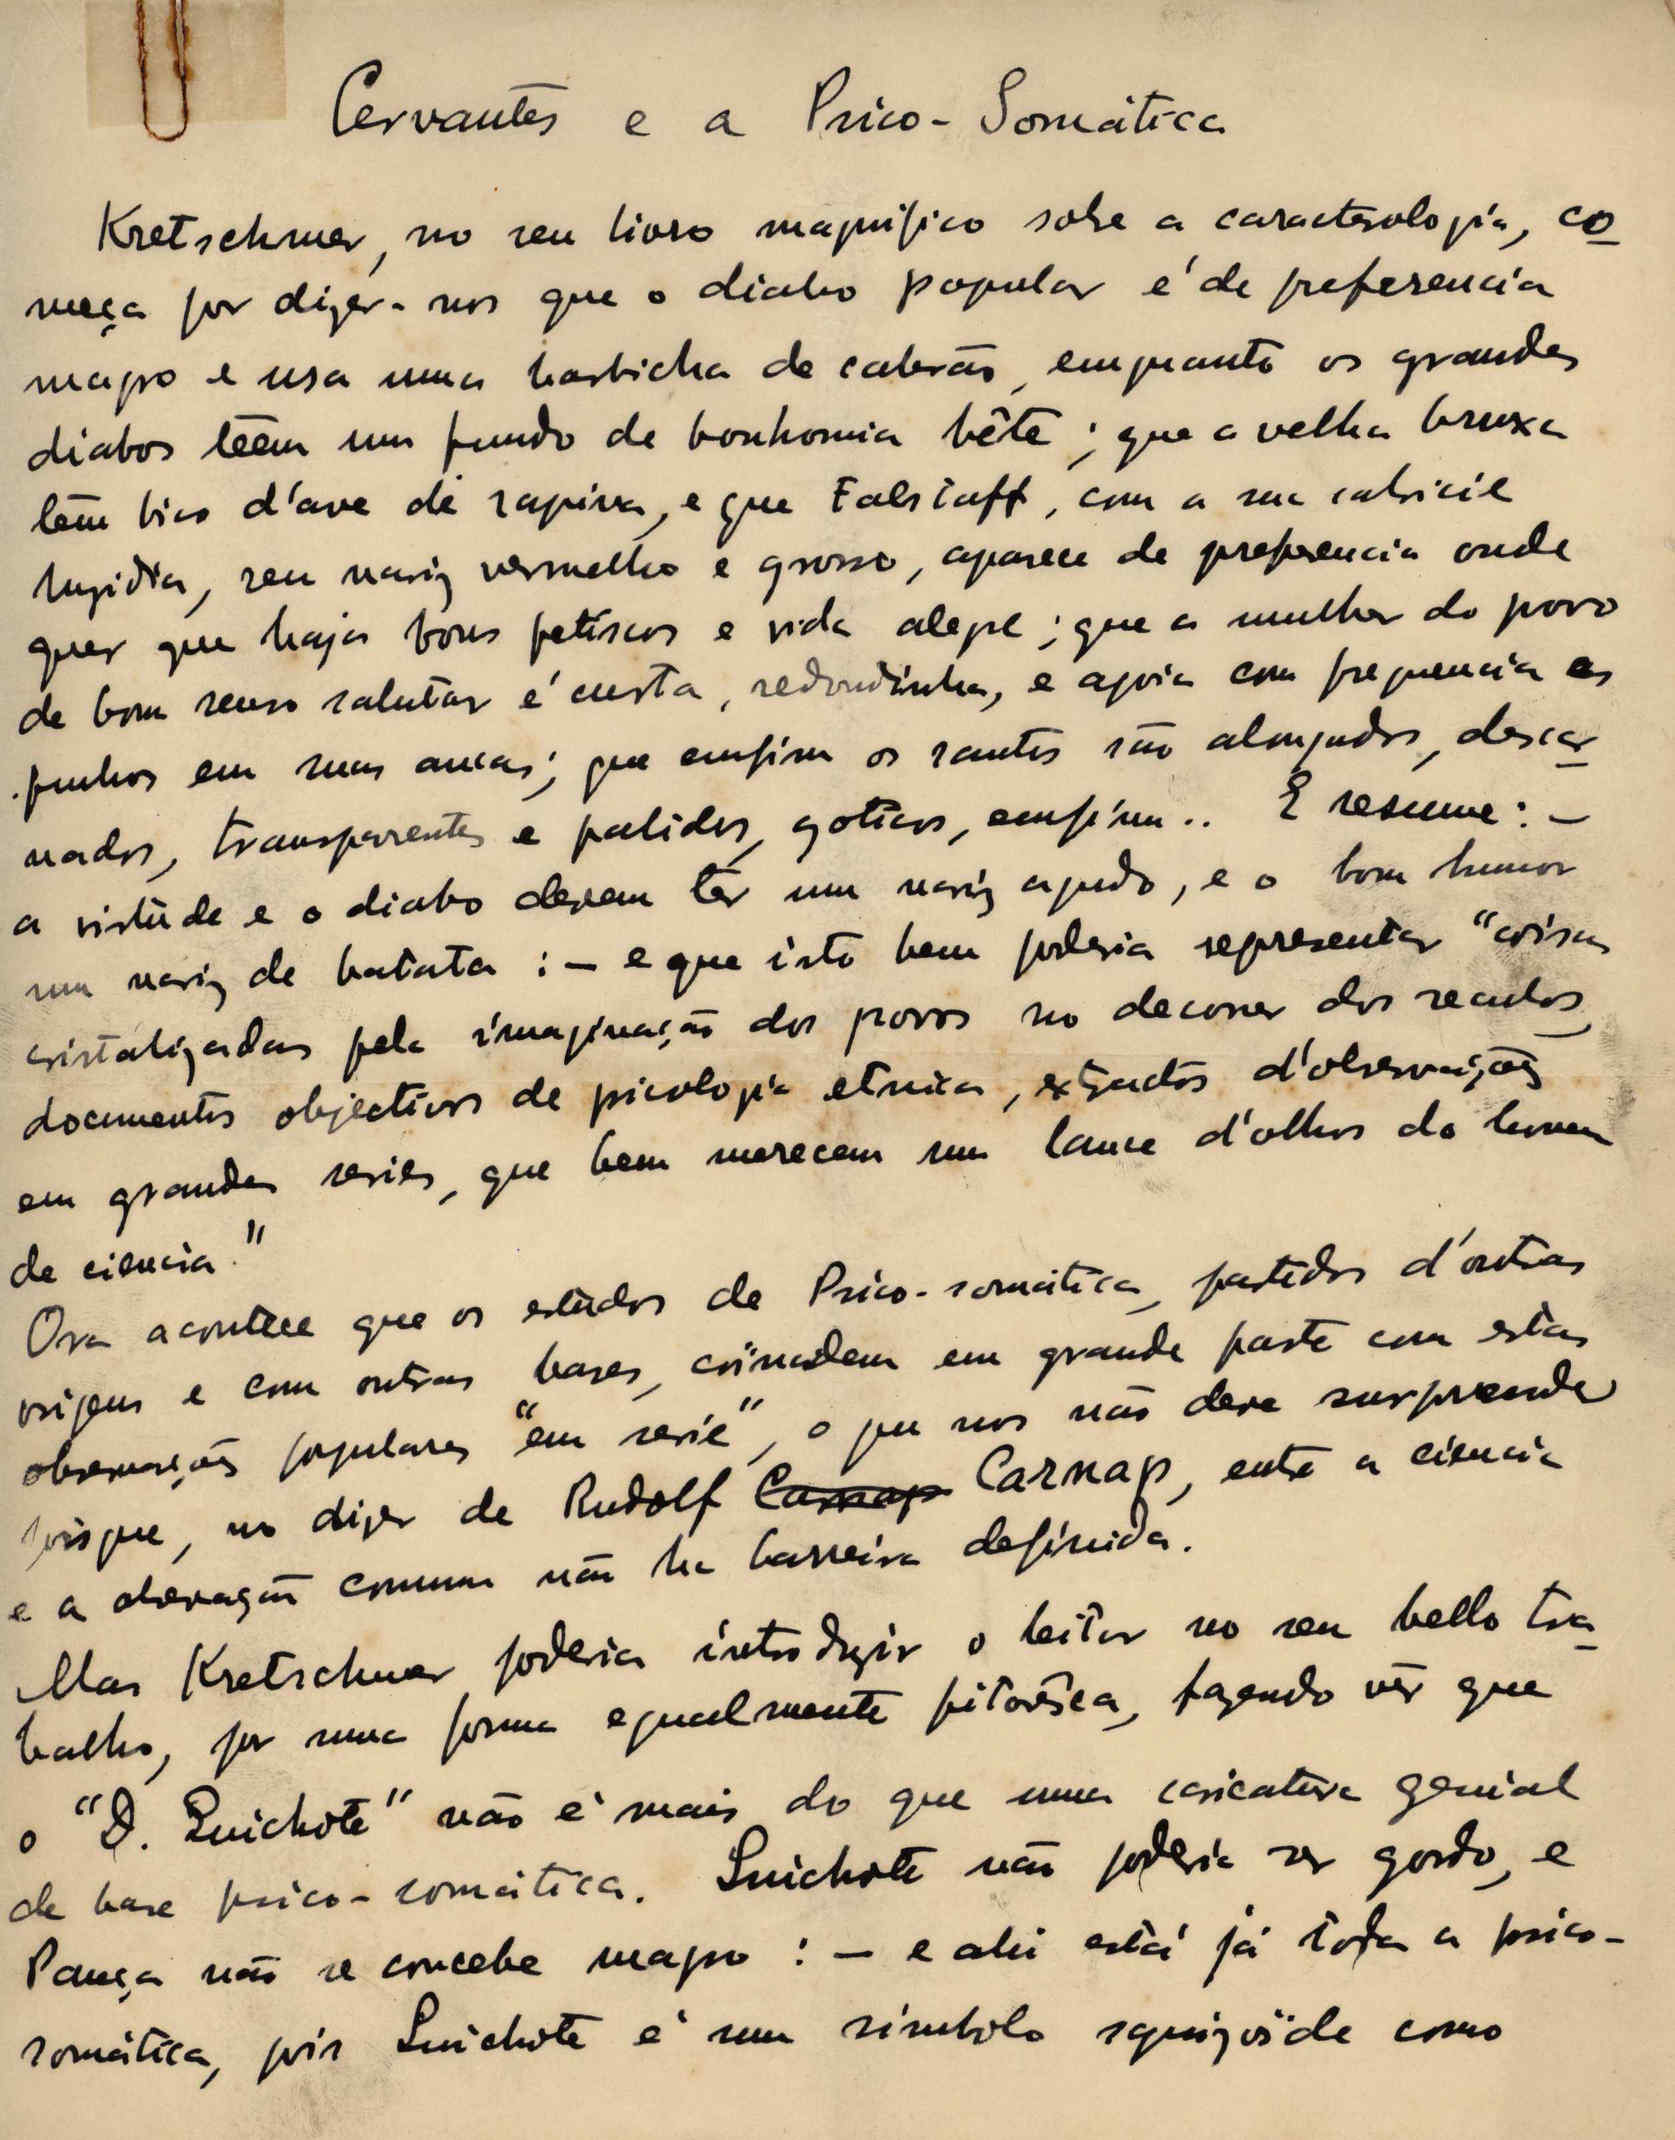 Cervantes e a Psico-Somática
Kretschmer, no seu livro magnifico sobre a caracterologia, co
meça por dizer-nos que o diabo popular é de preferencia
magro e usa uma barbicha de cabrão, emquanto os grandes
diabos teêm um fundo de bonhomia bête ; que a velha bruxa
têm bico d'ave de rapina, e que Falstaff, com a sua calvicie
luzidia, seu nariz vermelho e grosso, aparece de preferencia onde
quer que haja bons petiscos e vida alegre ; que a mulher do povo
de bom senso salutar é curta, redondinha, e apoia com frequencia os
punhos em suas ancas ; que emfim os santos são alongados, descar
nados, transparentes e palidos, goticos, emfim.. E resume : –
a virtude e o diabo devem ter um nariz agudo, e o bom humor
um nariz de batata : – e que isto bem poderia representar "coisas
cristalizadas pela imaginação dos povos no decorrer dos seculos,
documentos objectivos de psicologia etnica, extractos d'observações
em grandes series, que bem merecem um lance d'olhos do homem
de ciencia."
Ora acontece que os estudos de Psico-somática, partidos d'outras
origens e com outras bases, coincidem em grande parte com estas
observações populares "em serie", o que nos não deve surpreender
pois que, no dizer de Rudolf Carnap Carnap, entre a ciencia
e a observação comum não ha barreira definida.
Mas Kretschmer poderia introduzir o leitor no seu bello tra
balho, por uma forma egualmente pitorêsca, fazendo vêr que
o "D. Quichote" não é mais do que uma caricatura genial
de base psico-somática. Quichote não poderia ser gordo, e
Pança não se concebe magro : – e ahi está já toda a psico-
somática, pois Quichote é um simbolo squizoïde como